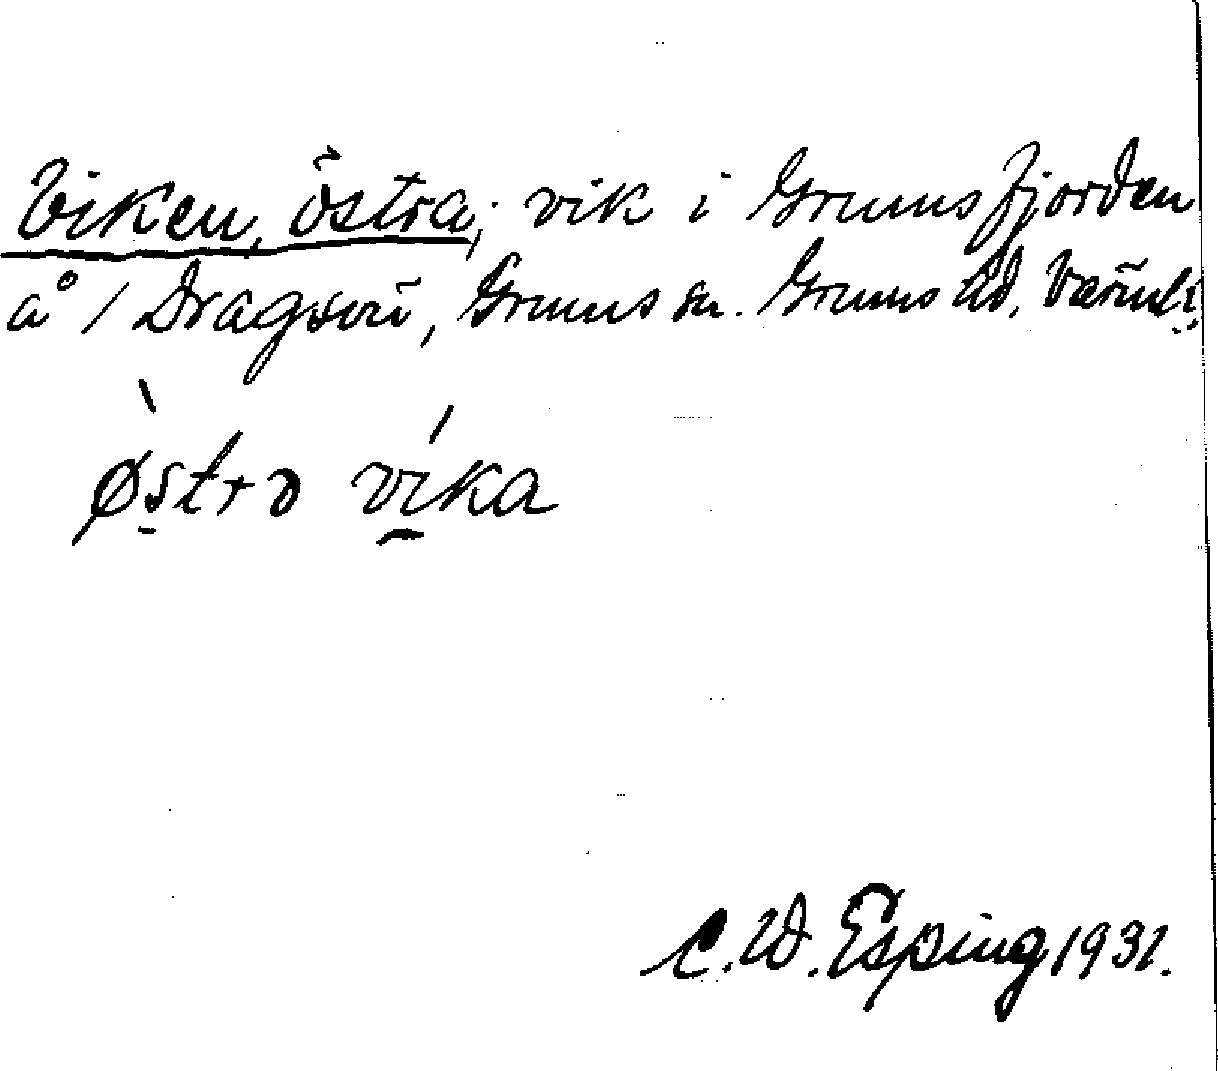 Viken, östra; vik i Grumsfjorden
å / Dragsön, Grums sn. Grums hd. Värml.
østrɔ vika
C.W. Esping 1931.